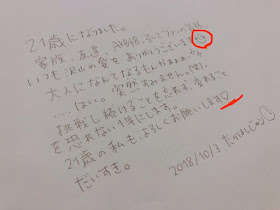 21歳になりました。
家族、友達、AKB48、そしてファンの皆様
いつも沢山の愛をありがとうございます
大人になんてなるもんかぁぁぁ
……はい。突然すみません。(笑)
挑戦し続けることを忘れず、変わること
を恐れない1年にします。
21歳の私も、よろしくお願いします♡
だいすき。
2018/10/3